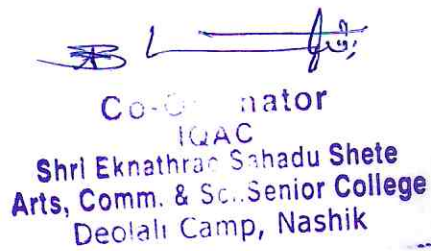 Co-Ordinator
IQAC
Shri Eknathrao Sahadu Shete
Arts, Comm. & Sc..Senior College
Deolali Camp, Nashik